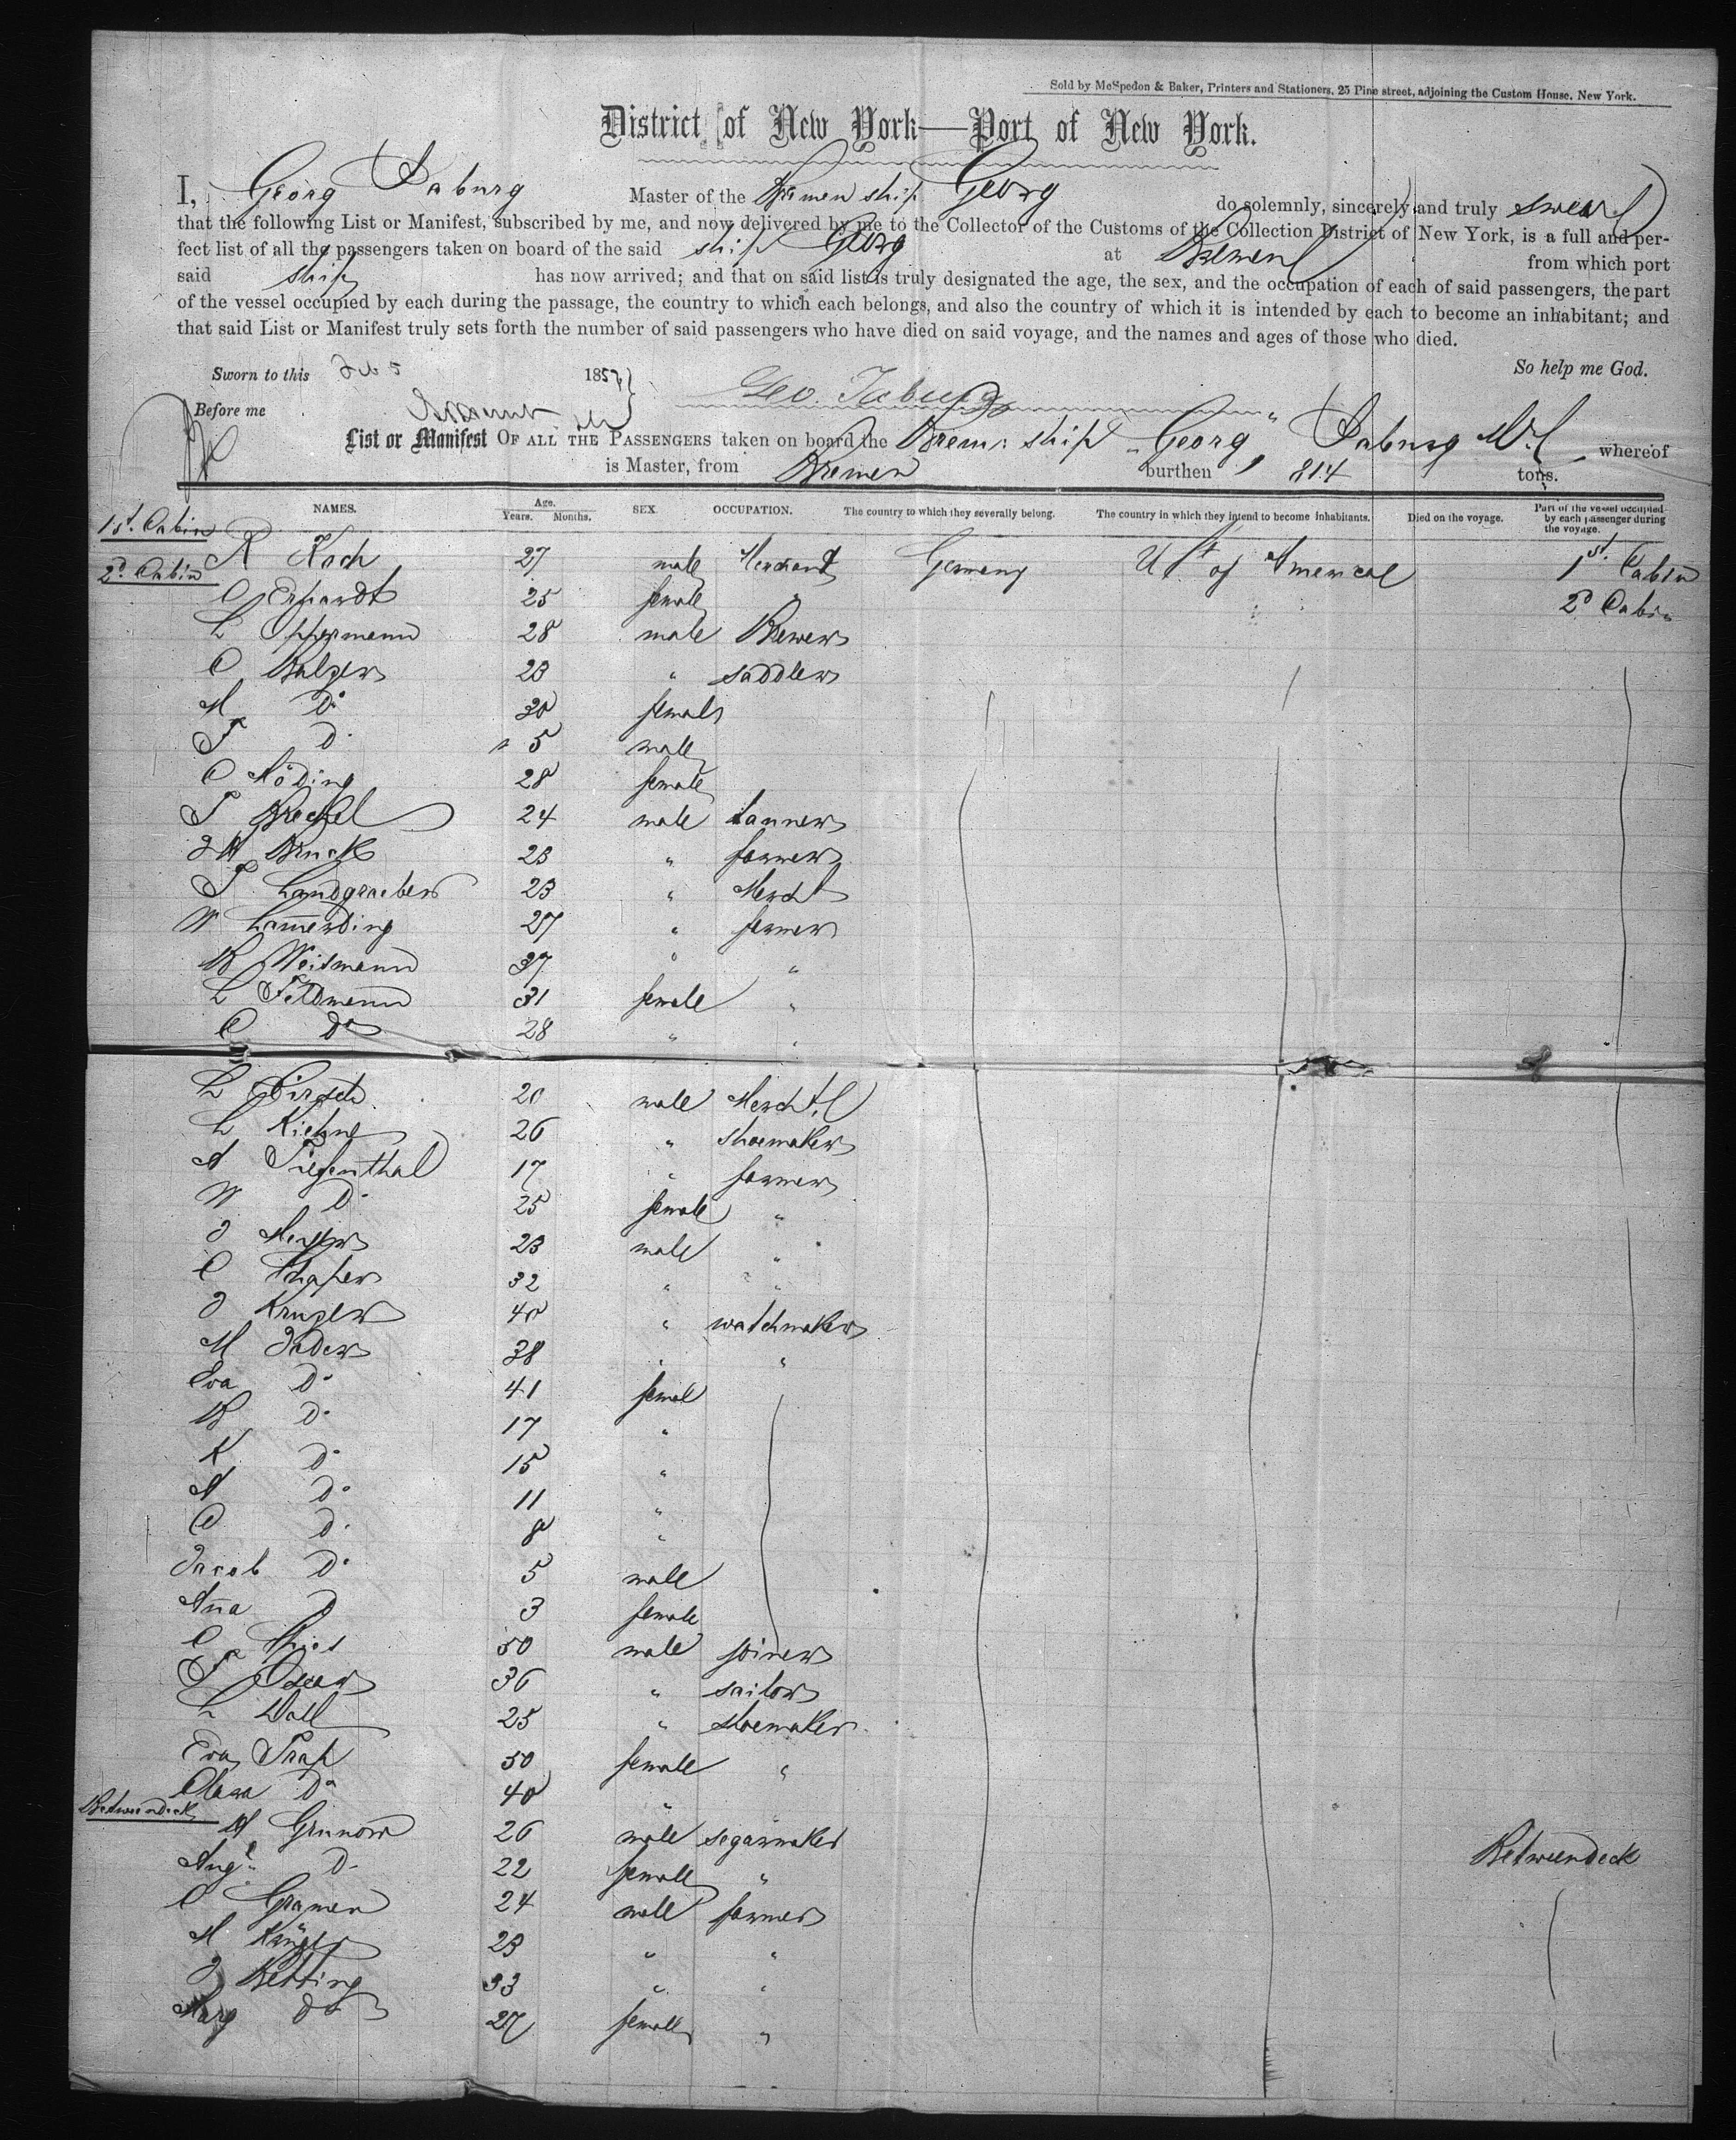 Sold by McSpedon & Baker, Printers and Stationers, 25 Pine street, adjoining the Custom House, New York.
District of New York—Port of New York.
I, Georg Master of the Bremen ship Georg do solemnly, sincerely and truly swear
that the following List or Manifest, subscribed by me, and now delivered by me to the Collector of the Customs of the Collection District of New York, is a full and per-
fect list of all the passengers taken on board of the said ship Georg at Bremen from which port
said ship has now arrived; and that on said list is truly designated the age, the sex, and the occupation of each of said passengers, the part
of the vessel occupied by each during the passage, the country to which each belongs, and also the country of which it is intended by each to become an inhabitant; and
that said List or Manifest truly sets forth the number of said passengers who have died on said voyage, and the names and ages of those who died.
So help me God.
Sworn to this Feb 5 185
Geo.
Before me
List or Manifest OF ALL THE PASSENGERS taken on board the Brem: ship "Georg" whereof
is Master, from Bremen burthen 814 tons.
NAMES. Age. Years. Months. SEX. OCCUPATION. The country to which they severally belong. The country in which they intend to become inhabitants. Died on the voyage. Part of the vessel occupied by each passenger during the voyage.
1st. Cabin
R Koch 27 male Merchant Germany U St of America 1st. Cabin
2d. Cabin
C Erhardt 25 female " 2d Cabin
L Oppermann 28 male Brewer
C Balzer 23 " saddler
M Do 30 female
F Do 5 male
C Röding 28 female
F 24 male tanner
Bruck 23 " farmer
F Landgraeber 23 " Mercht
W Lam̅erding 27 " farmer
B Weitmann 37 " "
L Feldmann 31 female "
C Do 28 " "
L Hirsch 20 male Mercht
L Kiehne 26 " shoemaker
A Tiefenthal 17 " farmer
W Do 25 female "
J Meyer 23 male "
C 32 " "
J Kruger 40 " watchmaker
M Jader 38 " "
Eva Do 41 female
B Do 17 "
K Do 15 "
A Do 11 "
C Do 8 "
Jacob Do 5 male
An̅a D 3 female
C 50 male joiner
F 36 " sailor
L Doll 25 " shoemaker
Eva 50 female "
Clara Do 40 "
Betweendeck
A Grunow 26 male segarmaker Betweendeck
Do 22 female "
C Gramer 24 male farmer
M Krüger 23 " "
J Betting 33 " "
Marg Do 27 female "